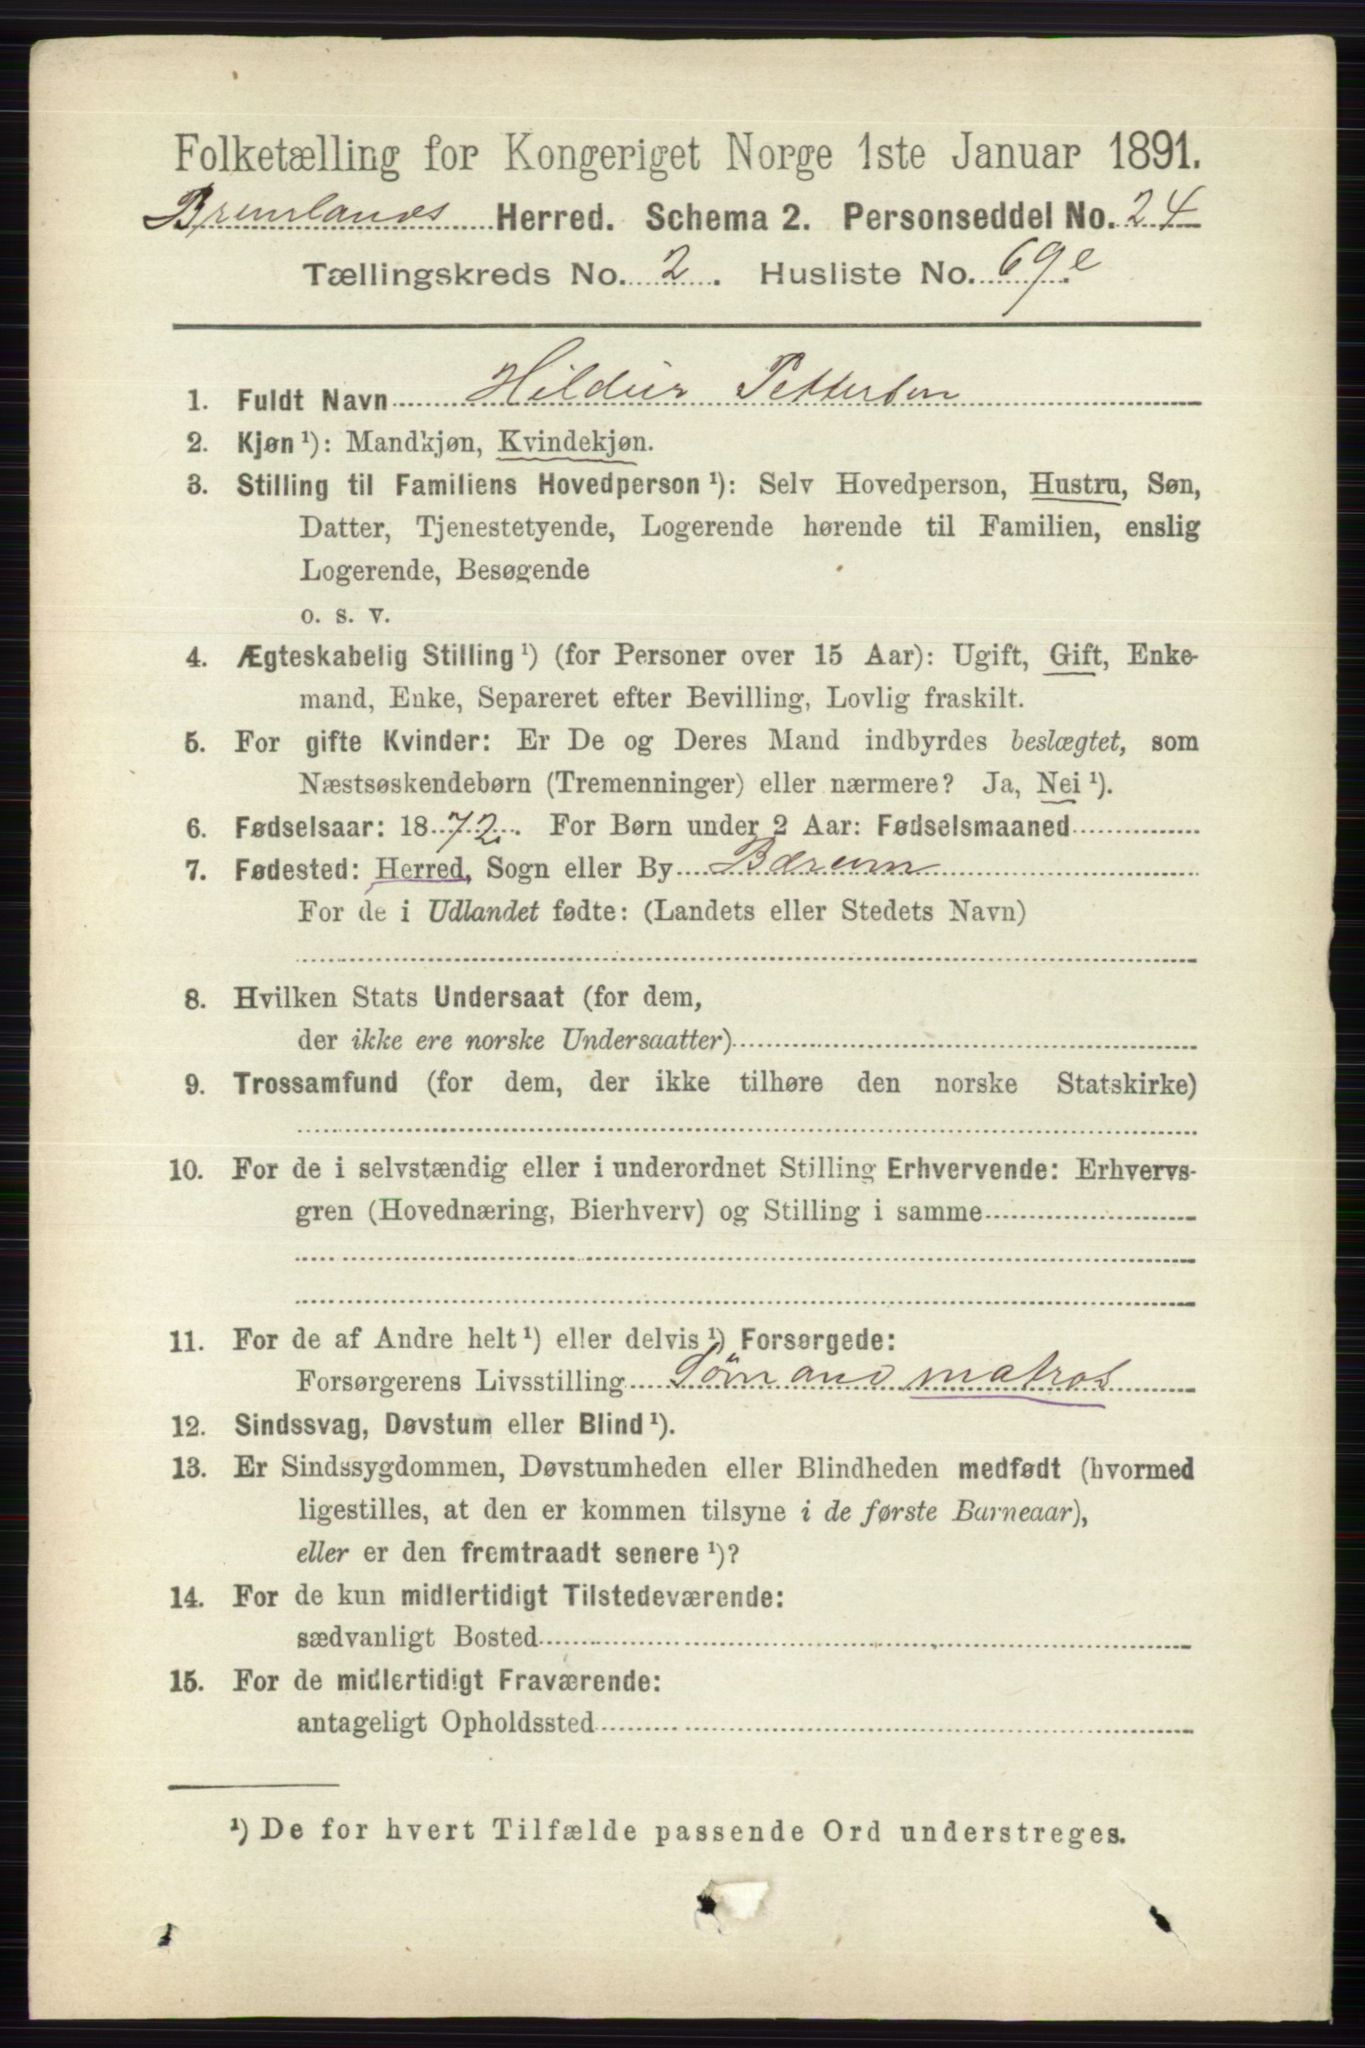 Folketælling for Kongeriget Norge 1ste Januar 1891.
Brunlanes Herred. Schema 2. Personseddel No. 24
Tællingskreds No. 2. Husliste No. 69e
1. Fuldt Navn Hildur Pettersen
2. Kjøn ¹): Mandkjøn, Kvindekjøn.
3. Stilling til Familiens Hovedperson ¹): Selv Hovedperson, Hustru, Søn,
Datter, Tjenestetyende, Logerende hørende til Familien, enslig
Logerende, Besøgende
o. s. v.
4. Ægteskabelig Stilling ¹) (for Personer over 15 Aar): Ugift, Gift, Enke-
mand, Enke, Separeret efter Bevilling, Lovlig fraskilt.
5. For gifte Kvinder: Er De og Deres Mand indbyrdes beslægtet, som
Næstsøskendebørn (Tremenninger) eller nærmere? Ja, Nei ¹).
6. Fødselsaar: 1872. For Børn under 2 Aar: Fødselsmaaned
7. Fødested: Herred, Sogn eller By Bærum
For de i Udlandet fødte: (Landets eller Stedets Navn)
8. Hvilken Stats Undersaat (for dem,
der ikke ere norske Undersaatter)
9. Trossamfund (for dem, der ikke tilhøre den norske Statskirke)
10. For de i selvstændig eller i underordnet Stilling Erhvervende: Erhvervs-
gren (Hovednæring, Bierhverv) og Stilling i samme
11. For de af Andre helt ¹) eller delvis ¹) Forsørgede:
Forsørgerens Livsstilling Sømand matros
12. Sindssvag, Døvstum eller Blind ¹).
13. Er Sindssygdommen, Døvstumheden eller Blindheden medfødt (hvormed
ligestilles, at den er kommen tilsyne i de første Barneaar),
eller er den fremtraadt senere ¹)?
14. For de kun midlertidigt Tilstedeværende:
sædvanligt Bosted
15. For de midlertidigt Fraværende:
antageligt Opholdssted
¹) De for hvert Tilfælde passende Ord understreges.